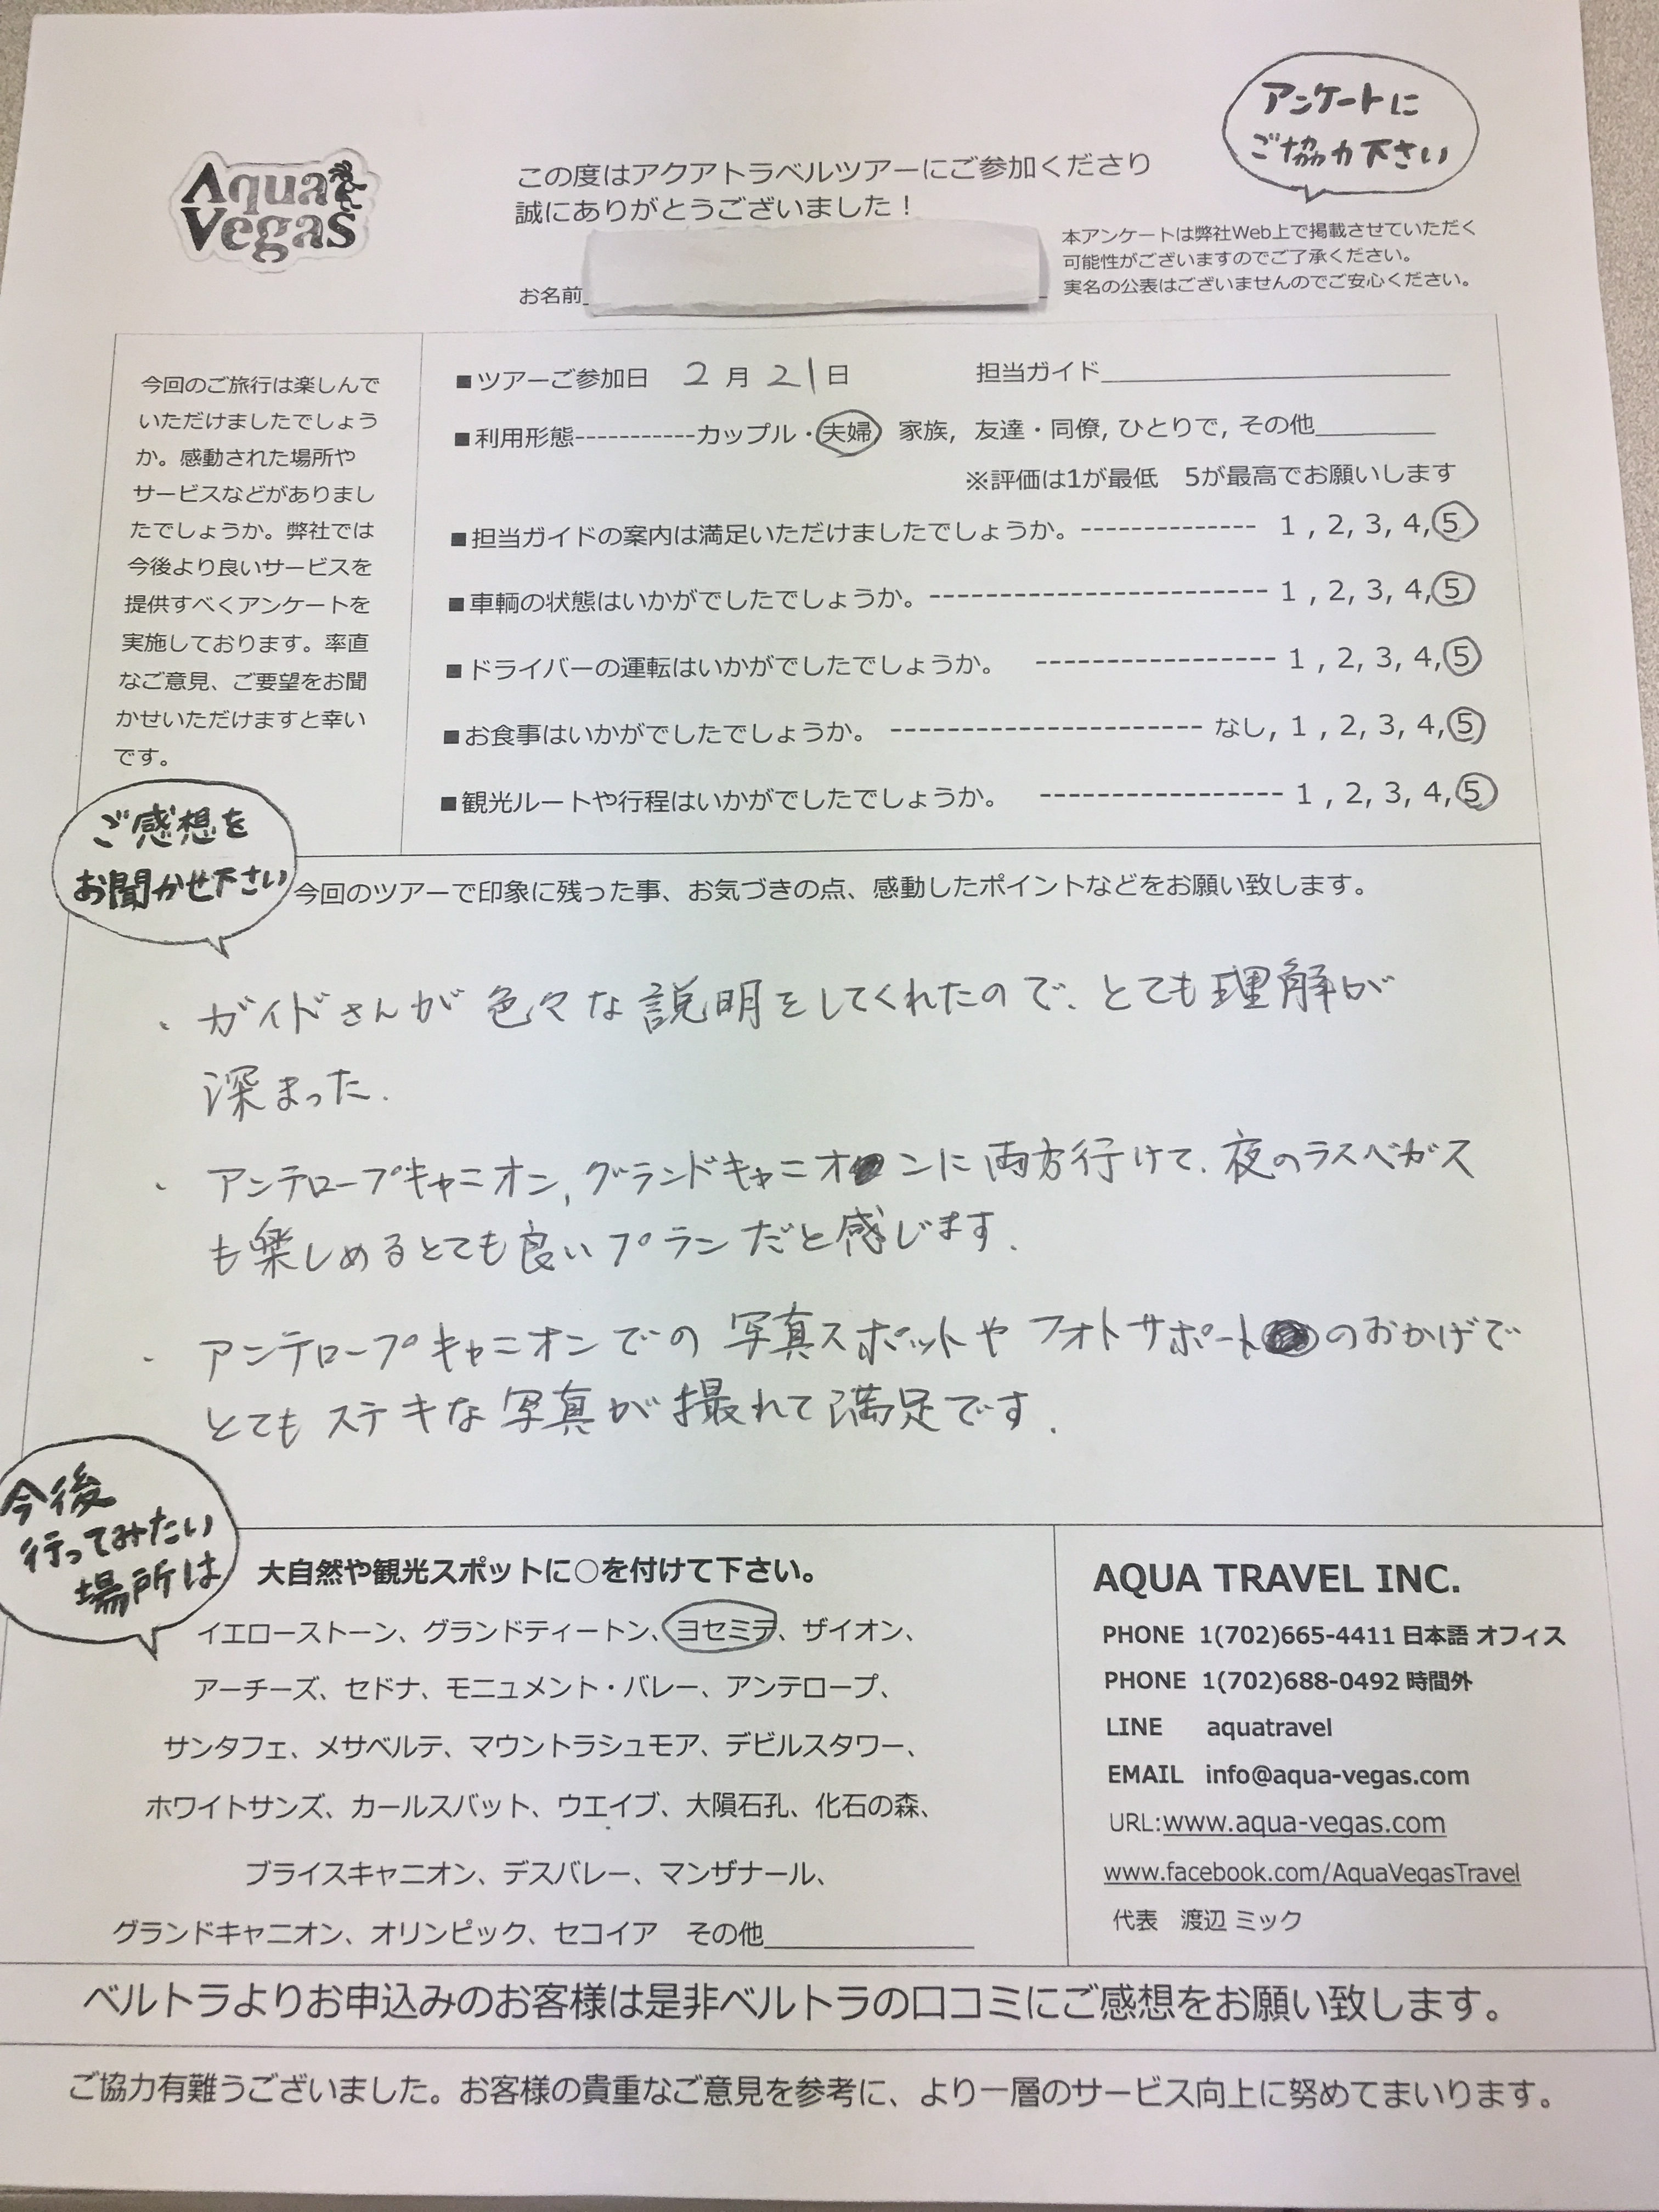 アンケートに
ご協力下さい
Aqua
Vegas
この度はアクアトラベルツアーにご参加くださり
誠にありがとうございました！
本アンケートは弊社Web上で掲載させていただく
可能性がございますのでご了承ください。
実名の公表はございませんのでご安心ください。
お名前
今回のご旅行は楽しんで
いただけましたでしょう
か。感動された場所や
サービスなどがありまし
たでしょうか。弊社では
今後より良いサービスを
提供すべくアンケートを
実施しております。率直
なご意見、ご要望をお聞
かせいただけますと幸い
です。
■ツアーご参加日 2月21日 担当ガイド
■利用形態-----------カップル・夫婦 家族, 友達・同僚, ひとりで, その他
※評価は1が最低 5が最高でお願いします
■担当ガイドの案内は満足いただけましたでしょうか。-------------- 1 , 2, 3, 4, 5
■車輌の状態はいかがでしたでしょうか。------------------------ 1 , 2, 3, 4, 5
■ドライバーの運転はいかがでしたでしょうか。 ----------------- 1 , 2, 3, 4, 5
■お食事はいかがでしたでしょうか。 ---------------------- なし, 1 , 2, 3, 4, 5
■観光ルートや行程はいかがでしたでしょうか。 ----------------- 1 , 2, 3, 4, 5
ご感想を
お聞かせ下さい
今回のツアーで印象に残った事、お気づきの点、感動したポイントなどをお願い致します。
・ガイドさんが色々な説明をしてくれたので、とても理解が
深まった.
・アンテロープキャニオン, グランドキャニオンに両方行けて、夜のラスベガス
も楽しめるとても良いプランだと感じます.
・アンテロープキャニオンでの写真スポットやフォトサポートのおかげで
とてもステキな写真が撮れて満足です.
今後
行ってみたい
場所は
大自然や観光スポットに○を付けて下さい。
イエローストーン、グランドティートン、ヨセミテ、ザイオン、
アーチーズ、セドナ、モニュメント・バレー、アンテロープ、
サンタフェ、メサベルテ、マウントラシュモア、デビルスタワー、
ホワイトサンズ、カールスバット、ウエイブ、大隕石孔、化石の森、
ブライスキャニオン、デスバレー、マンザナール、
グランドキャニオン、オリンピック、セコイア その他
AQUA TRAVEL INC.
PHONE 1(702)665-4411 日本語 オフィス
PHONE 1(702)688-0492 時間外
LINE aquatravel
EMAIL info@aqua-vegas.com
URL:www.aqua-vegas.com
www.facebook.com/AquaVegasTravel
代表 渡辺 ミック
ベルトラよりお申込みのお客様は是非ベルトラの口コミにご感想をお願い致します。
ご協力有難うございました。お客様の貴重なご意見を参考に、より一層のサービス向上に努めてまいります。